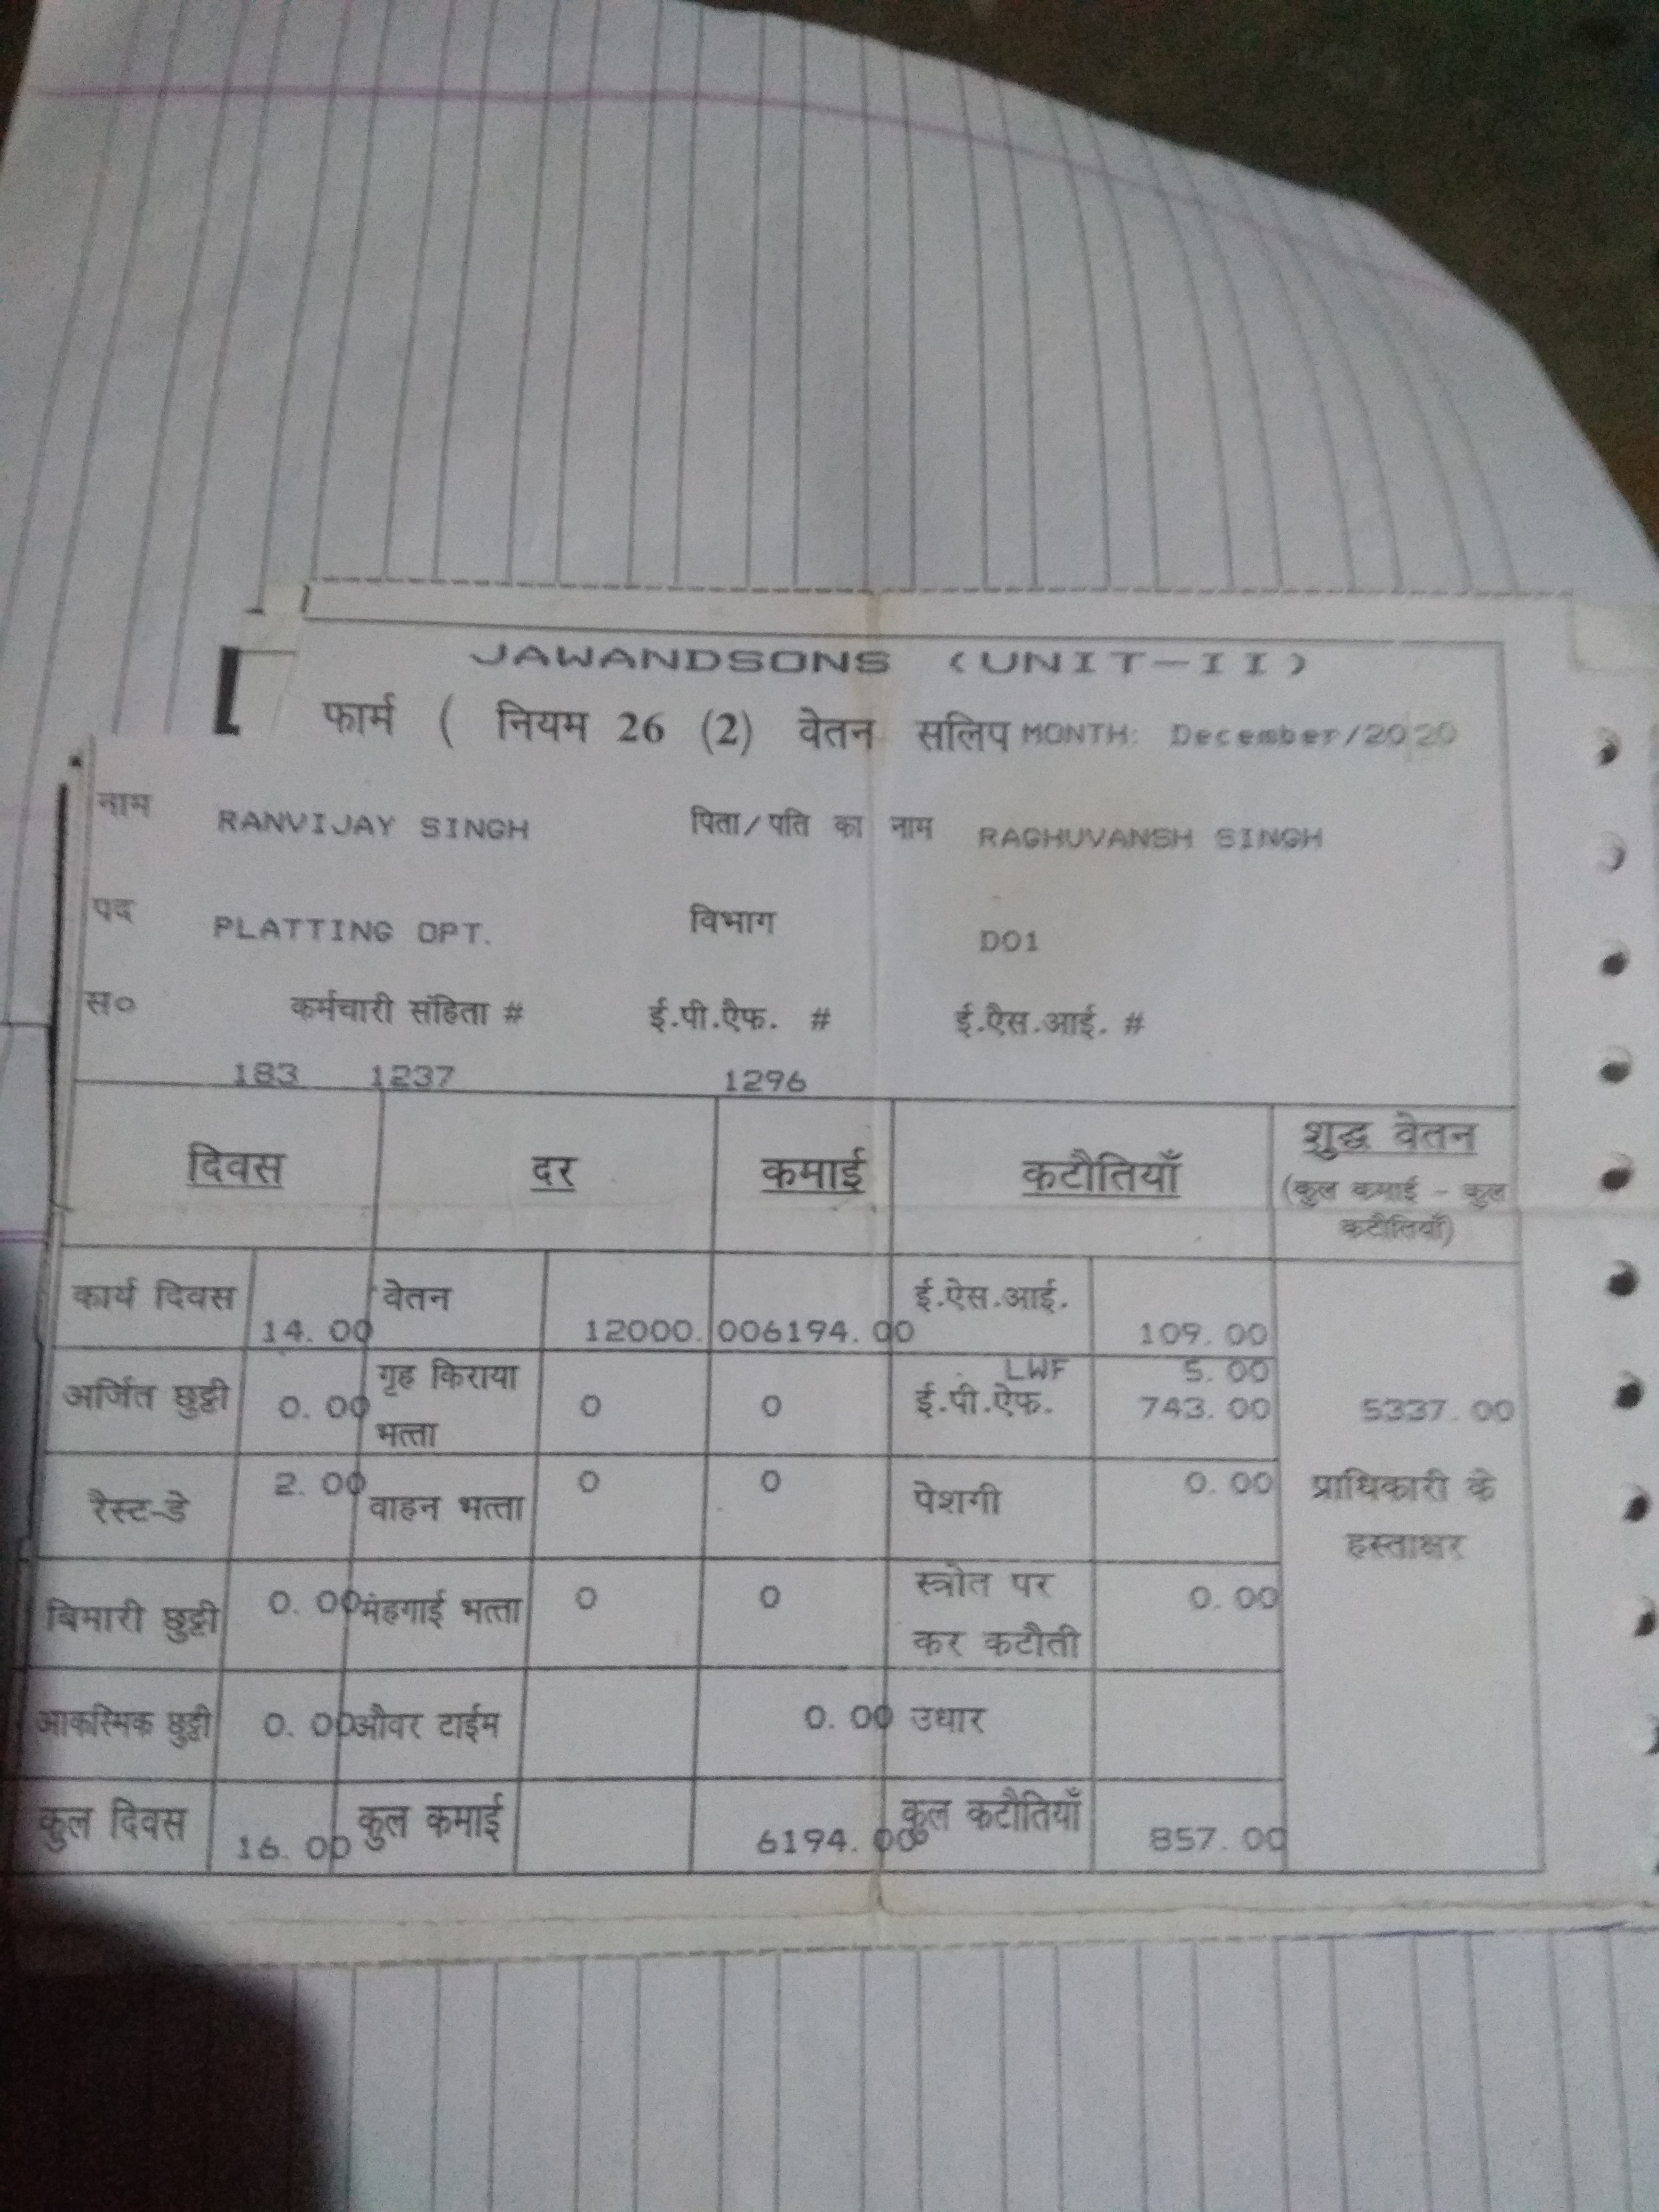 JAWANDSONS (UNIT-II)
फार्म ( नियम 26 (2) वेतन सलिप MONTH: December/2020
नाम RANVIJAY SINGH पिता/पति का नाम RAGHUVANSH SINGH
पद PLATTING OPT. विभाग D01
स० कर्मचारी संहिता # ई.पी.ऐफ. # ई.ऐस.आई. #
183 1237 1296
दिवस दर कमाई कटौतियाँ शुद्ध वेतन
(कुल कमाई - कुल
कटौतियाँ)
कार्य दिवस 14.00 वेतन 12000.00 6194.00 ई.ऐस.आई. 109.00
LWF 5.00
अर्जित छुट्टी 0.00 गृह किराया भत्ता 0 0 ई.पी.ऐफ. 743.00 5337.00
रैस्ट-डे 2.00 वाहन भत्ता 0 0 पेशगी 0.00 प्राधिकारी के
हस्ताक्षर
बिमारी छुट्टी 0.00 मंहगाई भत्ता 0 0 स्त्रोत पर कर कटौती 0.00
आकस्मिक छुट्टी 0.00 औवर टाईम 0.00 उधार
कुल दिवस 16.00 कुल कमाई 6194.00 कुल कटौतियाँ 857.00